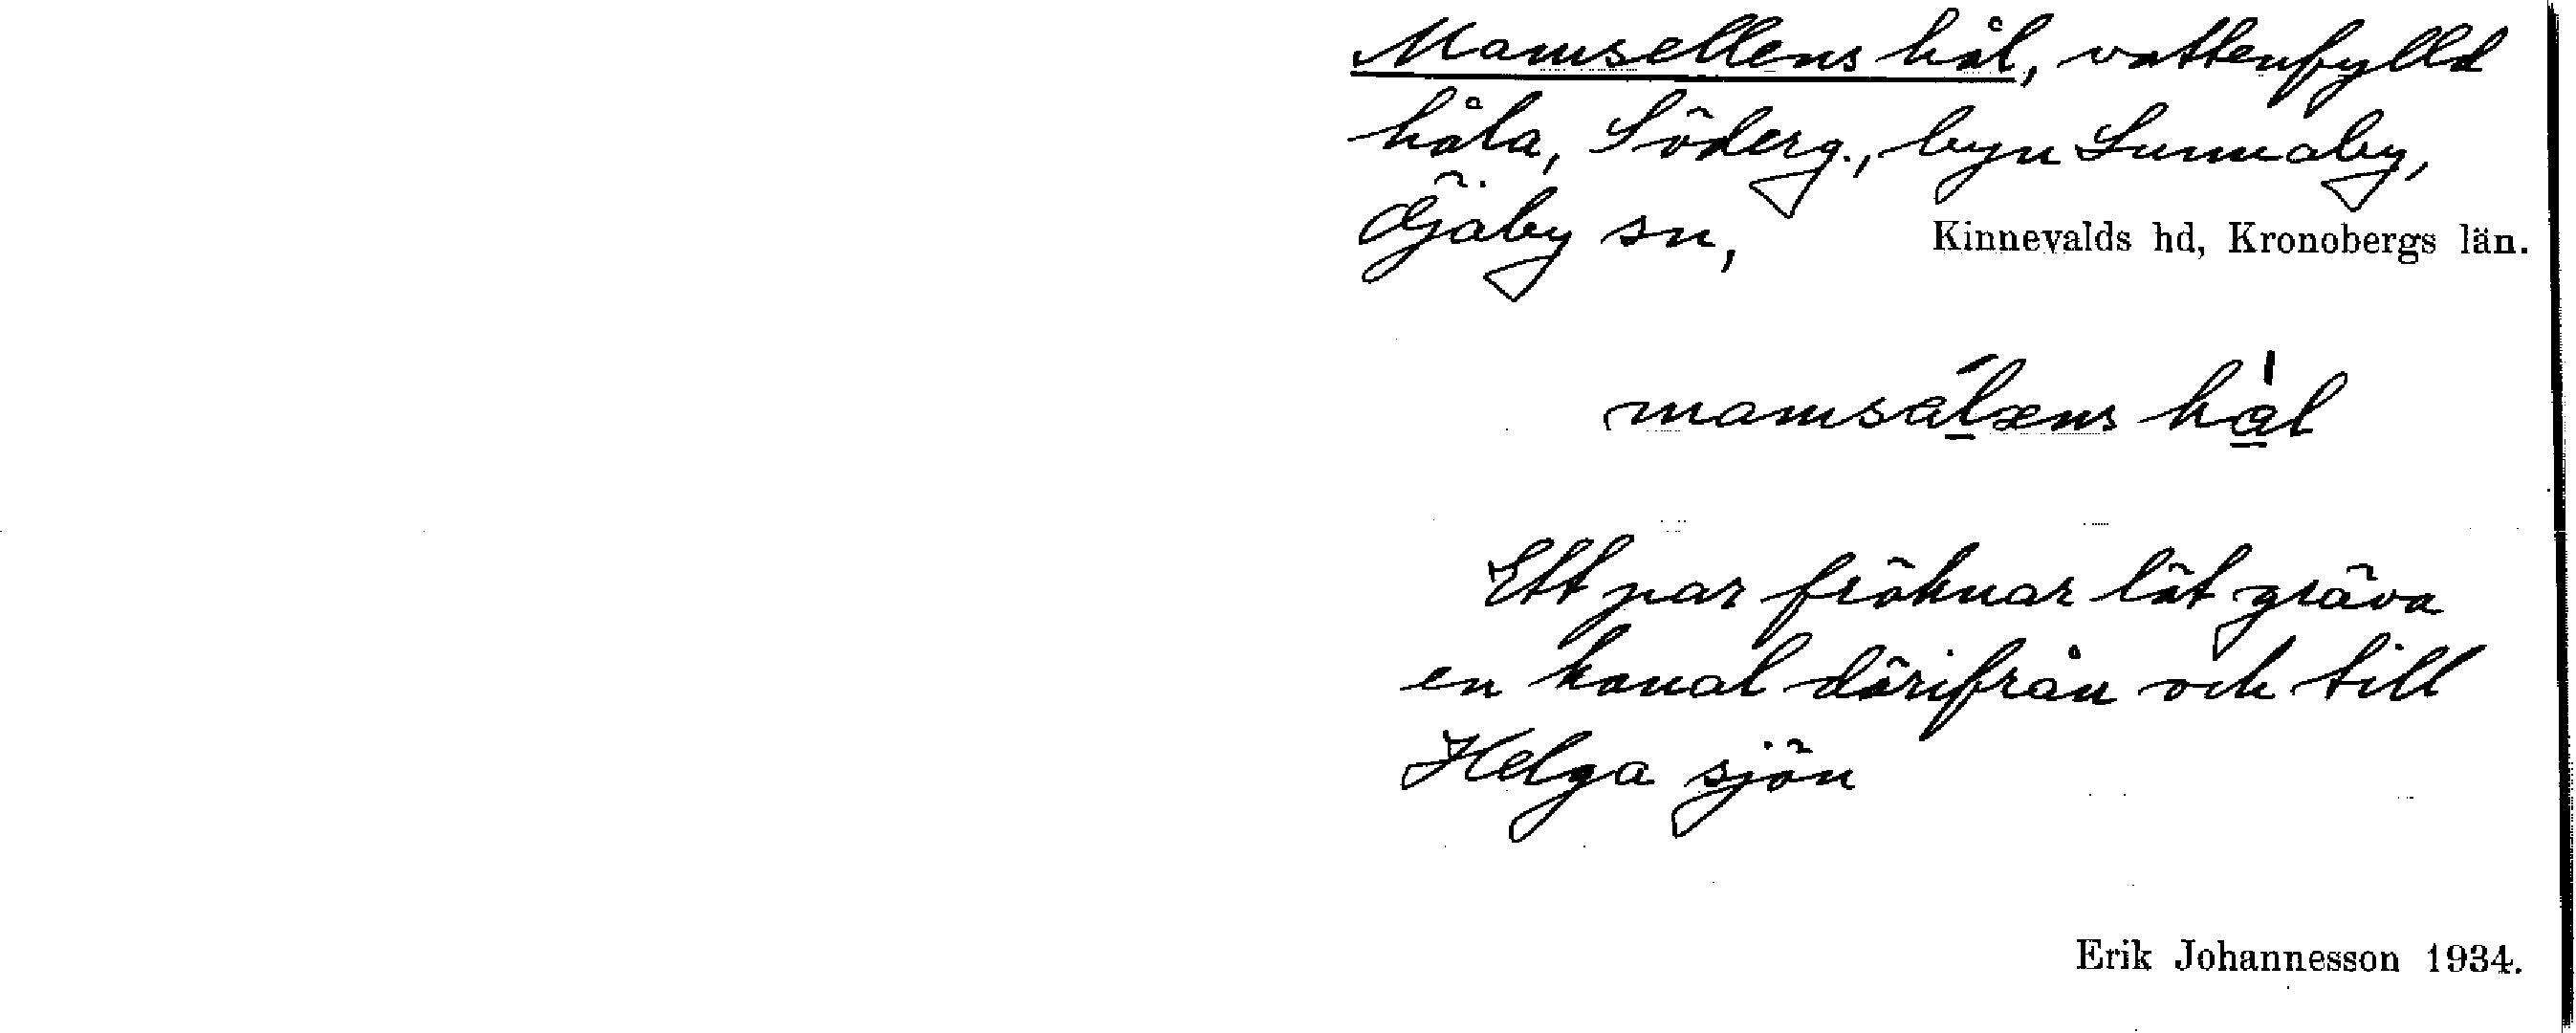 Mamsellens hål, vattenfylld
håla, Söderg., byn Lunnaby,
Öjaby sn, Kinnevalds hd, Kronobergs län.
mamsälæns hål
Ett par fröknar lät gräva
en kanal därifrån och till
Helga sjön
Erik Johannesson 1934.